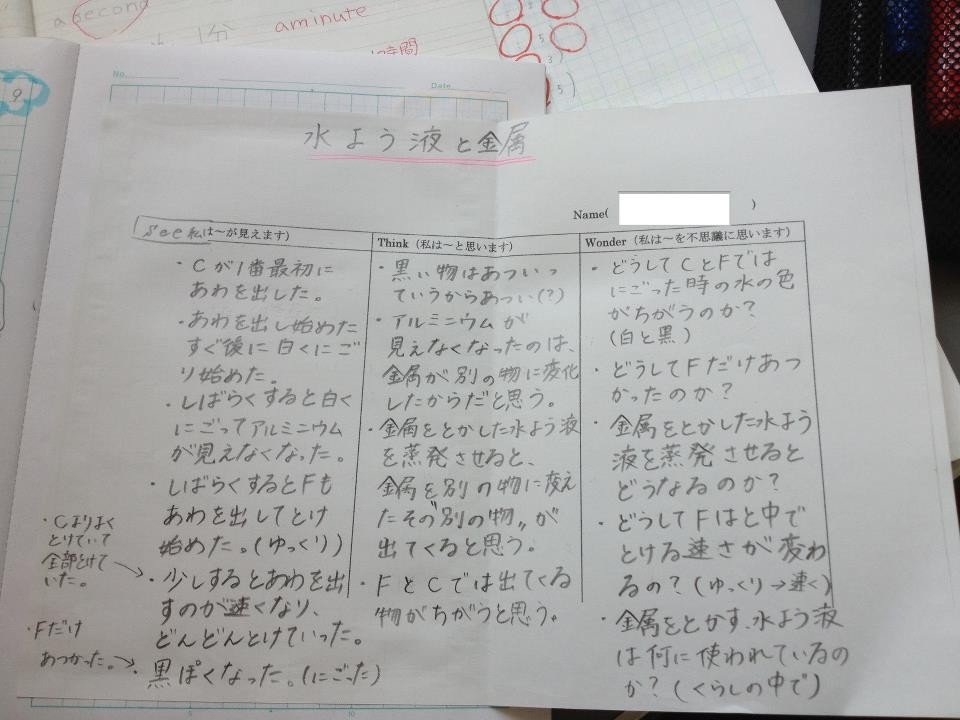 a second
1分
aminute
時間
5
5
3
9
No.
Date.
水よう液と金属
Name( )
See 私は〜が見えます)
・Cが1番最初に
あわを出した。
・あわを出し始めた
すぐ後に白くにご
り始めた。
・しばらくすると白く
にごってアルミニウム
が見えなくなった。
・しばらくするとFも
あわを出してとけ
始めた。(ゆっくり)
・少しするとあわを出
すのが速くなり、
どんどんとけていった。
・黒ぽくなった。(にごった)
・Cよりよく
とけていて
全部とけて
いた。
・Fだけ
あつかった。
Think(私は〜と思います)
・黒い物はあついっ
ていうからあつい(?)
・アルミニウムが
見えなくなったのは、
金属が別の物に変化
したからだと思う。
・金属をとかした水よう液
を蒸発させると、
金属を別の物に変え
たその"別の物"が
出てくると思う。
・FとCでは出てくる
物がちがうと思う。
Wonder(私は〜を不思議に思います)
・どうしてCとFでは
にごった時の水の色
がちがうのか?
(白と黒)
・どうしてFだけあ
つかったのか?
・金属をとかした水よう
液を蒸発させると
どうなるのか?
・どうしてFはと中で
とける速さが変わ
るの?(ゆっくり→速く)
・金属をとかす、水よう液
は何に使われているの
か?(くらしの中で)
5
10